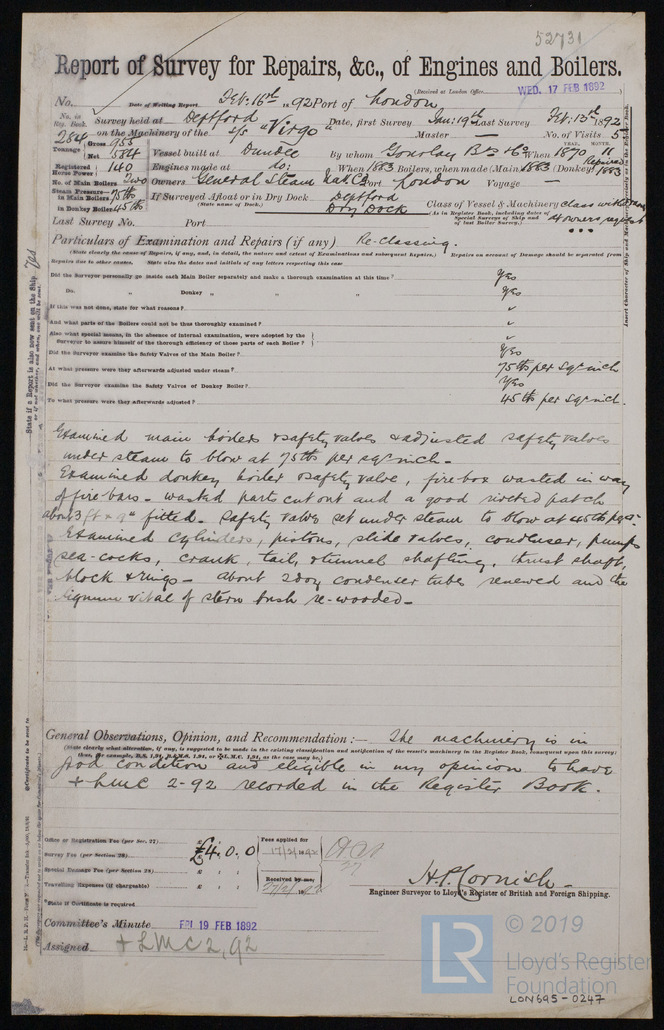 52731
Report of Survey for Repairs, &c., of Engines and Boilers.
(Received at London Office WED. 17 FEB 1892
No. Date of Writing Report Feb: 16th 1892 Port of London
No. in Reg. Book. Survey held at Deptford Date, first Survey Jan: 19th Last Survey Feb: 15th 1892
284 on the Machinery of the s/s "Virgo" Master — No. of Visits 5
Tonnage Gross 955 Net 584 Vessel built at Dundee By whom Gourlay Bros & Co When YEAR. 1870 MONTH. 11
Registered Horse Power 140 Engines made at do: When 1883 Boilers, when made (Main) 1883 (Donkey) Repaired 1883
No. of Main Boilers Two Owners General Steam Nav Co Port London Voyage
Steam Pressure in Main Boilers 75 lbs If Surveyed Afloat or in Dry Dock Deptford Class of Vessel & Machinery Class withdrawn
in Donkey Boiler 45 lbs (State name of Dock.) Dry Dock (As in Register Book, including dates of Special Surveys of Ship and of last Boiler Survey.) at owners request
Last Survey No. Port
Particulars of Examination and Repairs (if any) Re-classing.
(State clearly the cause of Repairs, if any, and, in detail, the nature and extent of Examinations and subsequent Repairs.) Repairs on account of Damage should be separated from
Repairs due to other causes. State also the dates and initials of any letters respecting this case
Did the Surveyor personally go inside each Main Boiler separately and make a thorough examination at this time? Yes
Do. " Donkey " " " " Yes
If this was not done, state for what reasons? "
And what parts of the Boilers could not be thoroughly examined? "
Also what special means, in the absence of internal examination, were adopted by the
Surveyor to assure himself of the thorough efficiency of those parts of each Boiler? "
Did the Surveyor examine the Safety Valves of the Main Boiler? Yes
At what pressure were they afterwards adjusted under steam? 75 lbs per sqr inch
Did the Surveyor examine the Safety Valves of Donkey Boiler? Yes
To what pressure were they afterwards adjusted? 45 lbs per sqr inch.
Examined main boilers & safety valves & adjusted safety valves
under steam to blow at 75 lbs per sqr inch.-
Examined donkey boiler & safety valve, fire box wasted in way
of fire bars - wasted parts cut out and a good riveted patch
about 3 ft x 9" fitted. Safety valve set under steam to blow at 45 lbs
Examined cylinders, pistons, slide valves, condenser, pumps
sea-cocks, crank, tail, & tunnel shafting, thrust shaft,
block & rings - about 200 condenser tubes renewed and the
lignum vitae of stern bush re-wooded -
General Observations, Opinion, and Recommendation:— The machinery is in
(State clearly what alteration, if any, is suggested to be made in the existing classification and notification of the vessel's machinery in the Register Book, consequent upon this survey;
thus, for example, B.S. 1,94, B.&M.S. 1,94, or + L.M.C. 1,94, as the case may be.)
good condition and eligible in my opinion to have
+ LMC 2-92 recorded in the Register Book.
Office or Registration Fee (per Sec. 27) £ : :
Survey Fee (per Section 28) £4 : 0 : 0
Special Damage Fee (per Section 28) £ : :
Travelling Expenses (if chargeable) £ : :
Fees applied for
17/2/1892
Received by me,
H.P. Cornish
Engineer Surveyor to Lloyd's Register of British and Foreign Shipping.
*State if Certificate is required
Committee's Minute FRI 19 FEB 1892
Assigned + LMC 2,92
State if a Report is also now sent on the Ship. Yes
LR © 2019
Lloyd's Register
Foundation
LON695-0247